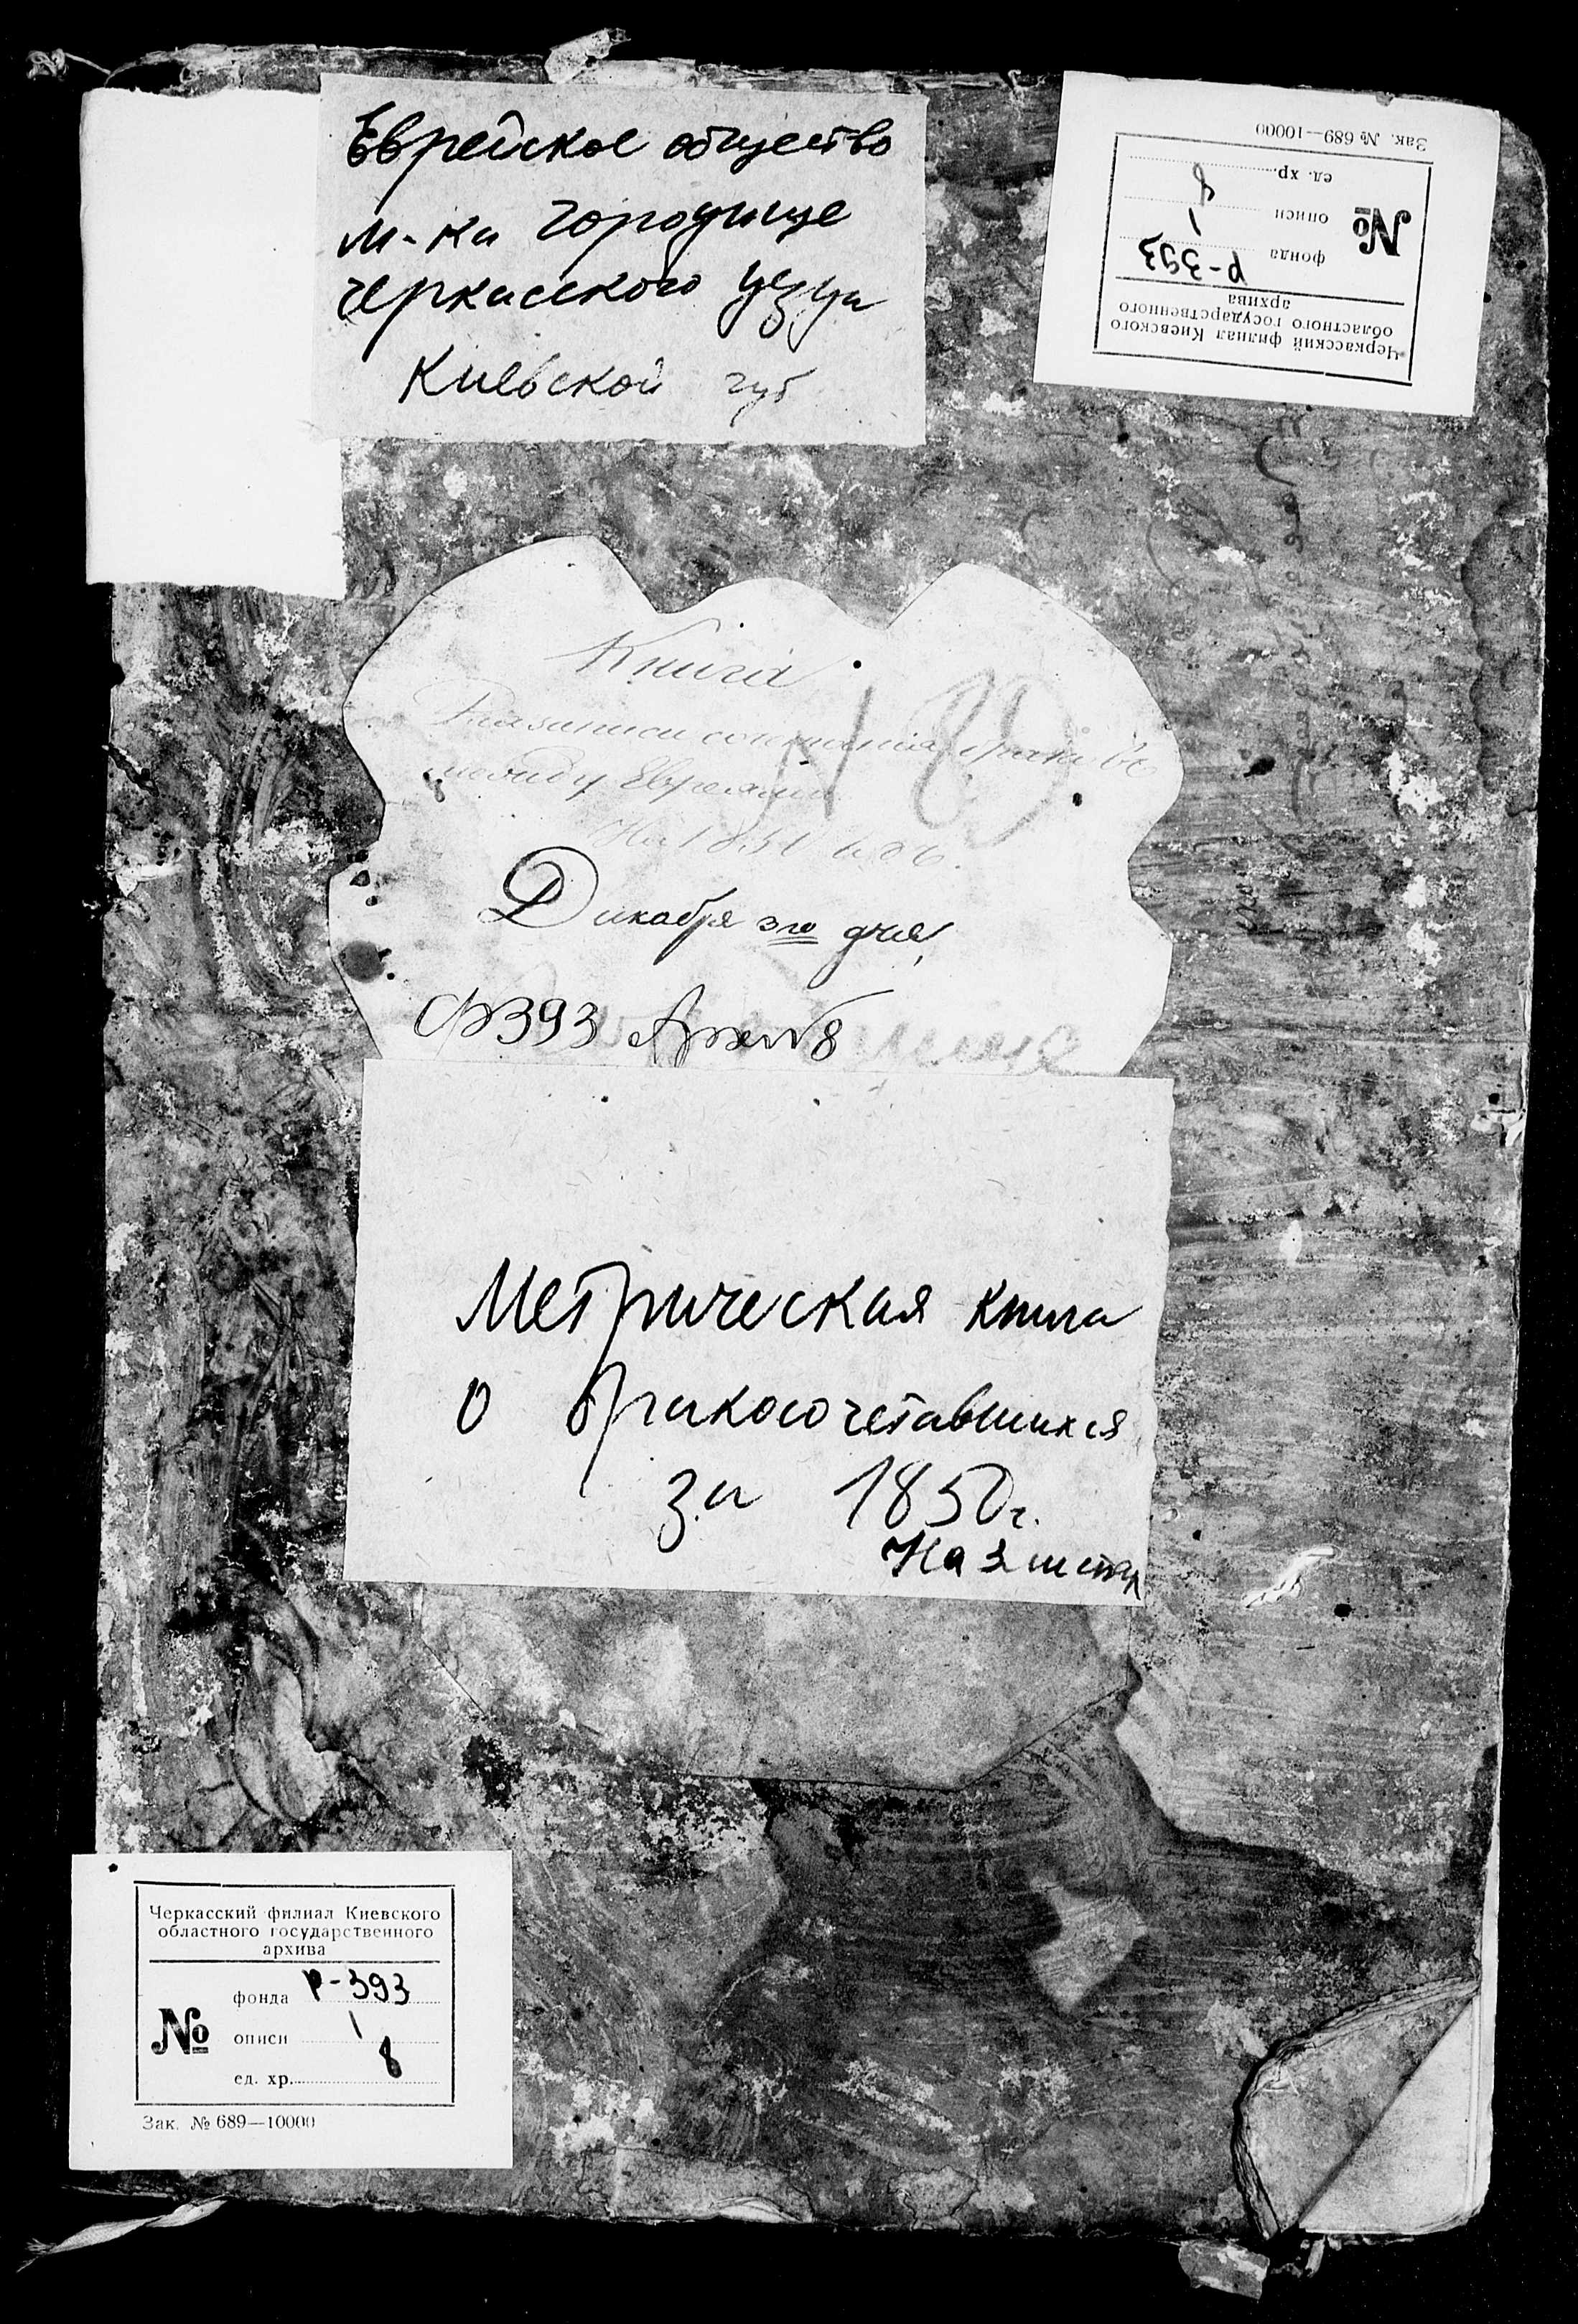 Еврейское общество
м-ка Городище
Черкасского уезда
Киевской губ
Зак. № 689—10000
ед. хр. 8
описи 1
№
фонда Р-393
Черкасский филиал Киевского
областного государственного
архива
Книга
между Евреями
На 1850 годъ.
Дикабря 3го дня
Ф393 Арх№8
Метрическая книга
о бракосочетавшихся
за 1850г.
На листах
Черкасский филиал Киевского
областного государственного
архива
фонда Р-393
№ описи 1
ед. хр. 8
Зак. № 689—10000